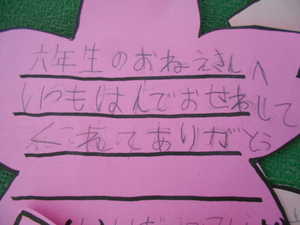 六年生のおねえさんへ
いつもはんでおせわして
くれてありがとう